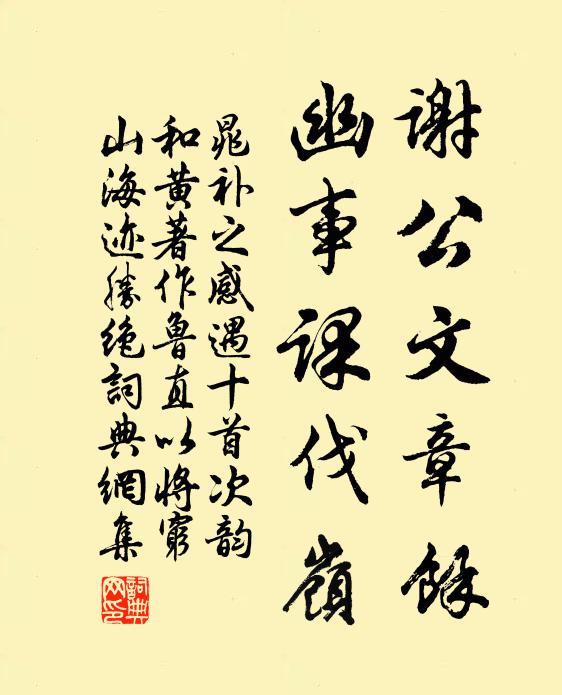 謝公文章餘
幽事課伐嶺
晁补之感遇十首次韵
和黄著作魯直以將窮
山海迹勝绝詞典網集
詞典
网印